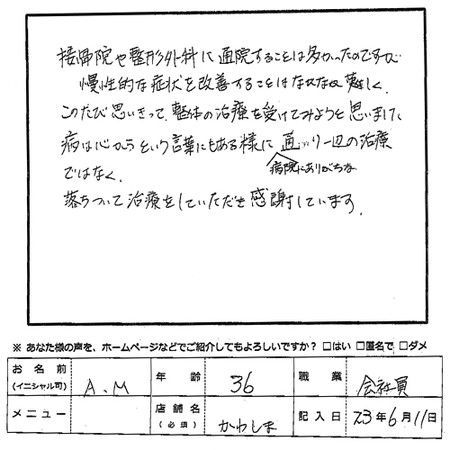 接骨院や整形外科に通院することは多かったのですが
慢性的な症状を改善することはなかなか難しく、
このたび思いきって、整体の治療を受けてみようと思いました。
病は心からという言葉にもある様に 通り一辺の治療
病院にありがちな
ではなく、
落ちついて治療をしていただき感謝しています。
※ あなた様の声を、ホームページなどでご紹介してもよろしいですか? □はい □匿名で □ダメ
お名前 (イニシャル可) A.M 年齢 36 職業 会社員
メニュー 店舗名 (必須) かわしま 記入日 23年6月11日